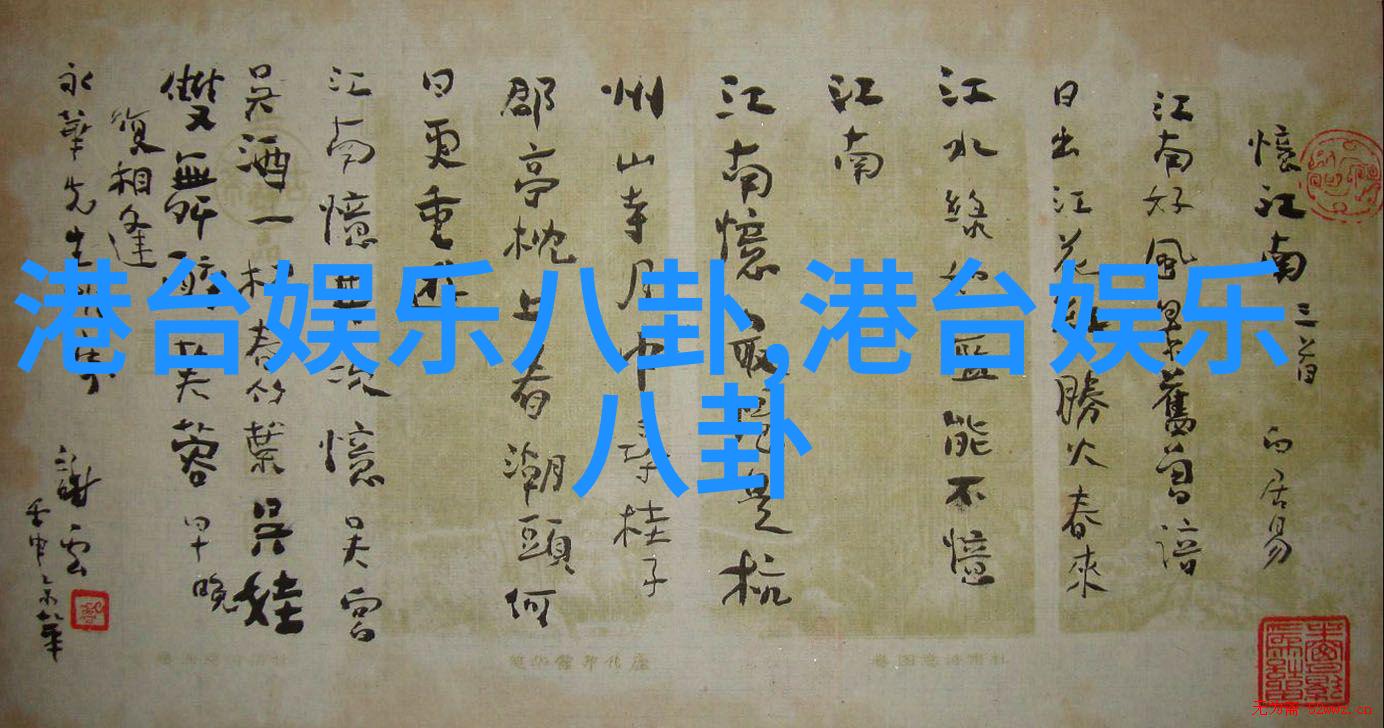 港台娱乐八卦,港台娱乐
八卦
憶江南 三首 白居易
江南好風景舊曾諳
日出江花紅勝火春來
江水綠如藍能不憶
江南
江南憶最憶是杭
州山寺月中尋桂子
郡亭枕上看潮頭何
日更重遊
江南憶其次憶吳宮
吳酒一杯春竹葉吳娃
雙舞醉芙蓉早晚
復相逢
永華先生
謝雲
壬申